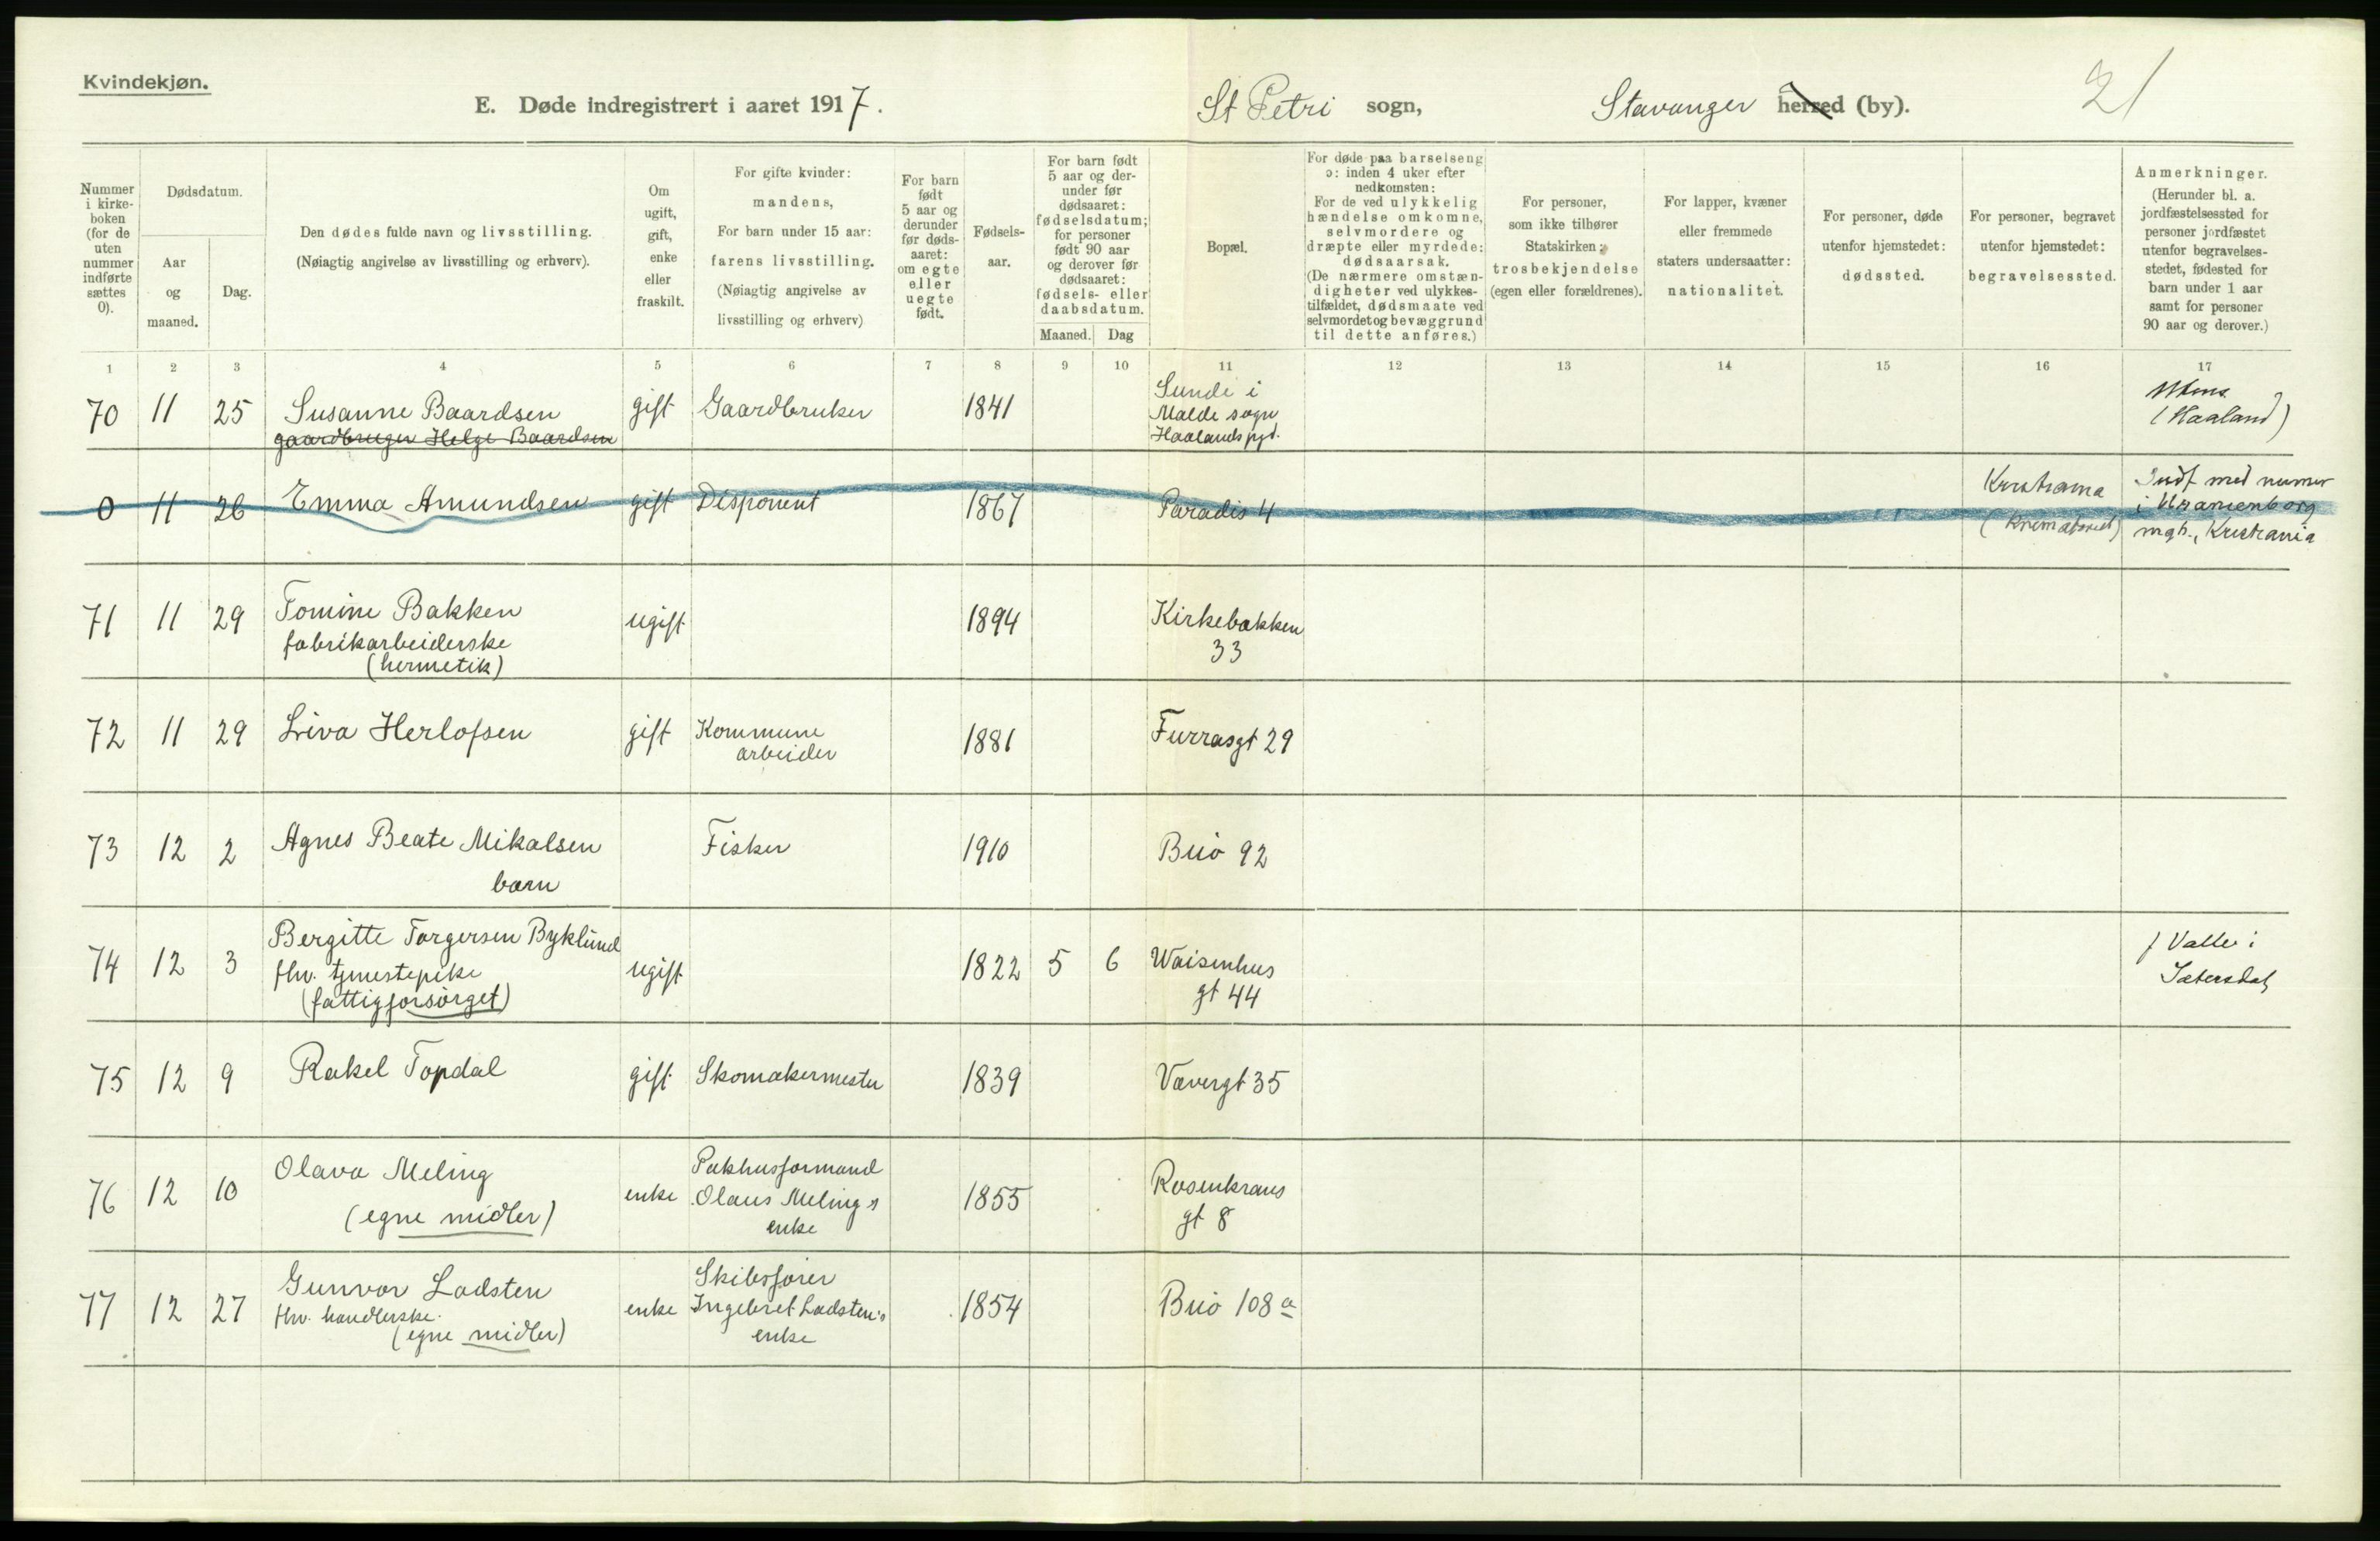 Kvindekjøn.
E. Døde indregistrert i aaret 1917. St Petri sogn, Stavanger herred (by). 21
Nummer i kirke-boken (for de uten nummer indførte sættes 0).
Dødsdatum.
Aar og maaned.
Dag.
Den dødes fulde navn og livsstilling.
(Nøiagtig angivelse av livsstilling og erhverv).
Om ugift, gift, enke eller fraskilt.
For gifte kvinder: mandens,
For barn under 15 aar: farens livsstilling.
(Nøiagtig angivelse av livsstilling og erhverv)
For barn født 5 aar og derunder før døds-aaret: om egte eller uegte født.
Fødsels-aar.
For barn født 5 aar og der-under før dødsaaret: fødselsdatum; for personer født 90 aar og derover før dødsaaret: fødsels- eller daabsdatum.
Maaned. Dag
Bopæl.
For døde paa barselseng ɔ: inden 4 uker efter nedkomsten:
For de ved ulykkelig hændelse omkomne, selvmordere og dræpte eller myrdede: dødsaarsak.
(De nærmere omstæn-digheter ved ulykkes-tilfældet, dødsmaate ved selvmordet og bevæggrund til dette anføres.)
For personer, som ikke tilhører Statskirken: trosbekjendelse (egen eller forældrenes).
For lapper, kvæner eller fremmede staters undersaatter: nationalitet.
For personer, døde utenfor hjemstedet: dødssted.
For personer, begravet utenfor hjemstedet: begravelsessted.
Anmerkninger.
(Herunder bl. a. jordfæstelsessted for personer jordfæstet utenfor begravelses-stedet, fødested for barn under 1 aar samt for personer 90 aar og derover.)
1 2 3 4 5 6 7 8 9 10 11 12 13 14 15 16 17
70 11 25 Susanne Baardsen gift Gaardbruker 1841 Sunde i
gaardbruger Helge Baardsen
Malde sogn
Haalands pgd.
(Haaland)
0 11 26 Emma Amundsen gift Disponent 1867 Paradis 4 Kristiania
(Krematoriet)
Indf med numer
i Uranienborg
mgh., Kristiania
71 11 29 Tomine Bakken ugift 1894 Kirkebakken
fabrikarbeiderske
(hermetik)
33
72 11 29 Liva Herlofsen gift Kommune
arbeider
1881 Furrasgt 29
73 12 2 Agnes Beate Mikalsen
barn
Fisker 1910 Buø 92
74 12 3 Bergitte Torgersen Byklund
fhv. tjenestepike
(fattigforsørget)
ugift 1822 5 6 Waisenhus
gt 44
f Valle i
Sætersdal
75 12 9 Rakel Topdal gift Skomakermester 1839 Vævergt 35
76 12 10 Olava Meling
(egne midler)
enke Pakhusformand
Olaus Meling's
enke
1855 Rosenkrans
gt 8
77 12 27 Gunvor Ladsten
fhv. handlerske.
(egne midler)
enke Skibsfører
Ingebret Ladsten's
enke
1854 Buø 108 a